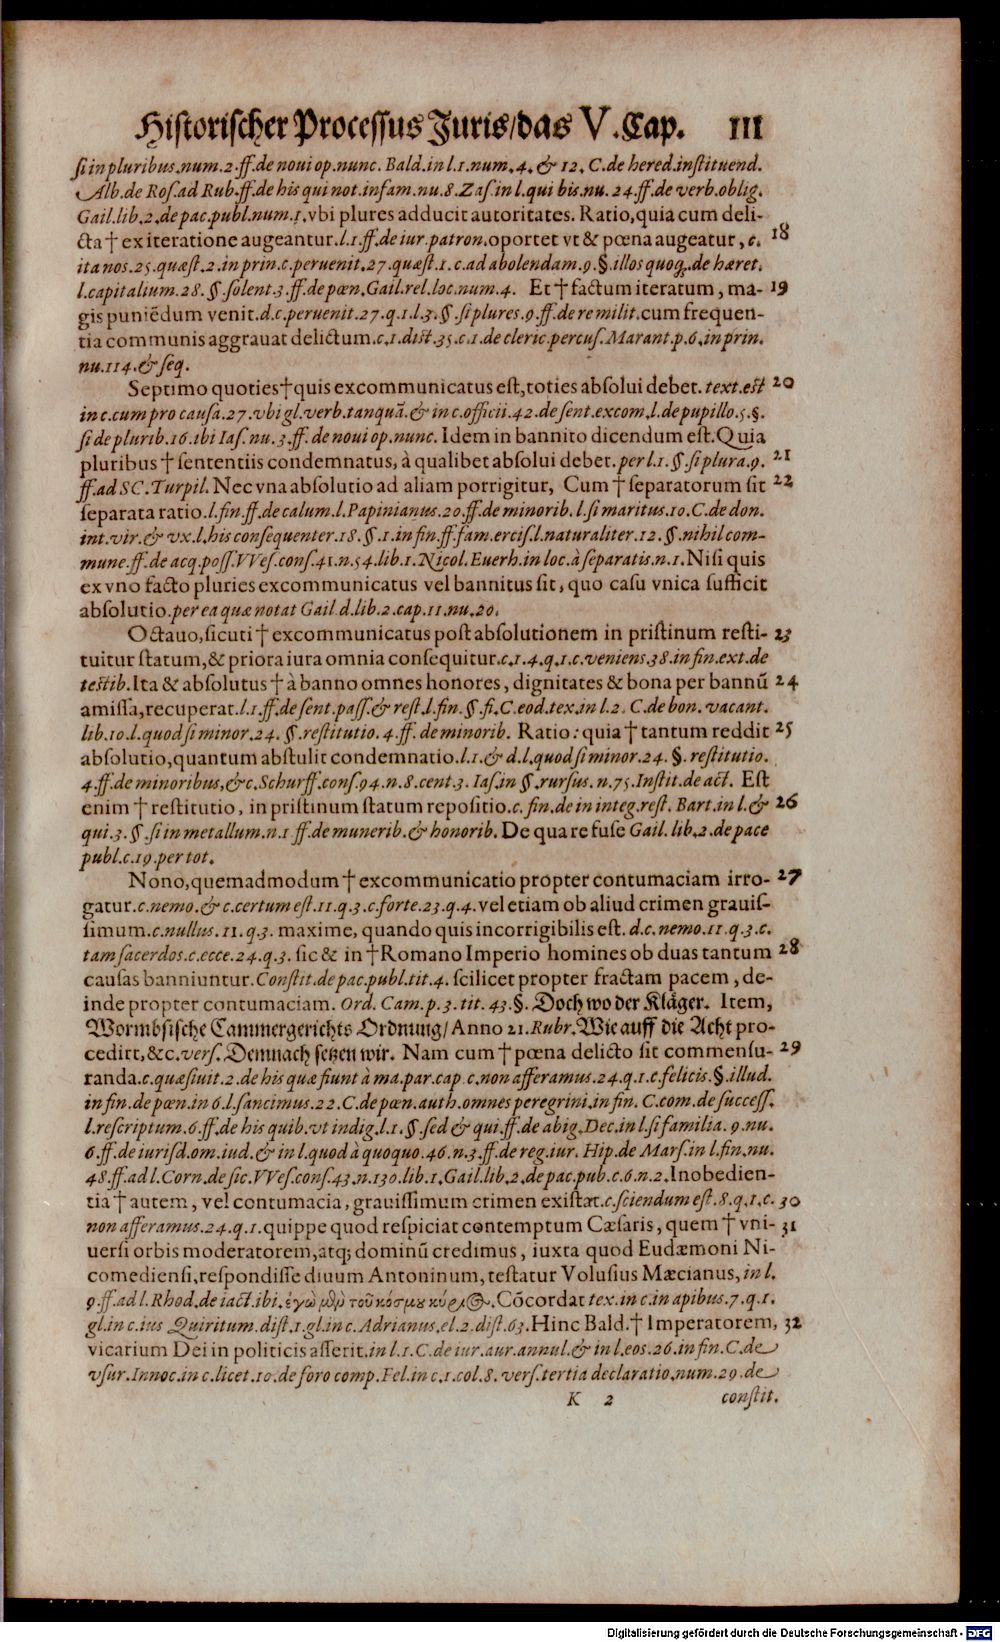 Historischer Processus Juris/das V. Cap. 111
si in pluribus.num.2.ff.de noui op.nunc. Bald.in l.1.num.4.& 12. C.de hered.instituend.
Alb.de Ros.ad Rub.ff.de his qui not.infam.nu.8.Zas.in l.qui bis.nu.24.ff.de verb.oblig.
Gail.lib.2.de pac.publ.num.1.vbi plures adducit autoritates. Ratio,quia cum deli-
cta † ex iteratione augeantur.l.1.ff.de iur.patron.oportet vt & pœna augeatur, c. 18
ita nos.25.quæst.2.in prin.c.peruenit.27.quæst.1.c.ad abolendam.9.§.illos quoq;.de hæret.
l.capitalium.28.§.solent.3.ff.de pœn.Gail.rel.loc.num.4. Et † factum iteratum, ma- 19
gis puniēdum venit.d.c.peruenit.27.q.1.l.3.§.si plures.9.ff.de re milit.cum frequen-
tia communis aggrauat delictum.c.1.dist.35.c.1.de cleric.percus.Marant.p.6.in prin.
nu.114.& seq.
Septimo quoties † quis excommunicatus est,toties absolui debet.text.est 20
in c.cum pro causa.27.vbi gl.verb.tanquā.& in c.officii.42.de sent.excom.l.de pupillo.5.§.
si de plurib.16.ibi Ias.nu.3.ff.de noui op.nunc. Idem in bannito dicendum est.Quia
pluribus † sententiis condemnatus, à qualibet absolui debet.per l.1.§.si plura.9. 21
ff.ad SC.Turpil. Nec vna absolutio ad aliam porrigitur, Cum † separatorum sit 22
separata ratio.l.fin.ff.de calum.l.Papinianus.20.ff.de minorib.l.si maritus.10.C.de don.
int.vir.& vx.l.his consequenter.18.§.1.in fin.ff.fam.ercis.l.naturaliter.12.§.nihil com-
mune.ff.de acq.poss.VVes.cons.41.n.54.lib.1.Nicol.Euerh.in loc.à separatis.n.1.Nisi quis
ex vno facto pluries excommunicatus vel bannitus sit, quo casu vnica sufficit
absolutio.per ea quæ notat Gail d.lib.2.cap.11.nu.20.
Octauo,sicuti † excommunicatus post absolutionem in pristinum resti- 23
tuitur statum,& priora iura omnia consequitur.c.1.4.q.1.c.veniens.38.in fin.ext.de
testib.Ita & absolutus † à banno omnes honores, dignitates & bona per bannū 24
amissa,recuperat.l.1.ff.de sent.pass.& rest.l.fin.§.fi.C.eod.tex.in l.2. C.de bon.vacant.
lib.10.l.quod si minor.24. §.restitutio. 4.ff. de minorib. Ratio: quia † tantum reddit 25
absolutio,quantum abstulit condemnatio.l.1.& d.l.quod si minor.24. §. restitutio.
4.ff.de minoribus,& c.Schurff.cons.94.n.8.cent.3. Ias.in §.rursus. n.75.Instit.de act. Est
enim † restitutio, in pristinum statum repositio.c. fin.de in integ.rest. Bart.in l.& 26
qui.3.§.si in metallum.n.1 ff.de munerib.& honorib. De qua re fuse Gail. lib.2.de pace
publ.c.19.per tot.
Nono,quemadmodum † excommunicatio propter contumaciam irro- 27
gatur.c.nemo.& c.certum est.11.q.3.c.forte.23.q.4.vel etiam ob aliud crimen grauis-
simum.c.nullus.11.q.3. maxime, quando quis incorrigibilis est. d.c.nemo.11.q.3.c.
tam sacerdos.c.ecce.24.q.3. sic & in † Romano Imperio homines ob duas tantum 28
causas banniuntur. Constit.de pac.publ.tit.4. scilicet propter fractam pacem, de-
inde propter contumaciam. Ord. Cam.p.3.tit. 43.§. Doch wo der Kläger. Item,
Wormbsische Cammergerichts Ordnung/Anno 21. Rubr.Wie auff die Acht pro-
cedirt,&c.vers. Demnach setzen wir. Nam cum † pœna delicto sit commensu- 29
randa.c.quæsiuit.2.de his quæ fiunt à ma.par.cap c.non afferamus.24.q.1.c felicis.§.illud.
in fin.de pœn.in 6.l.sancimus.22.C.de pœn.auth.omnes peregrini.in fin. C.com.de success.
l.rescriptum.6.ff.de his quib.vt indig.l.1.§.sed & qui.ff.de abig.Dec.in l.si familia.9.nu.
6.ff.de iurisd.om.iud.& in l.quod à quoquo.46.n.3.ff.de reg.iur. Hip.de Mars.in l.fin.nu.
48.ff.ad l.Corn.de sic.VVes.cons.43.n.130.lib.1.Gail.lib.2.de pac.pub.c.6.n.2.Inobedien-
tia † autem, vel contumacia, grauissimum crimen existat.c.sciendum est.8.q.1.c. 30
non afferamus.24.q.1.quippe quod respiciat contemptum Cæsaris, quem † vni- 31
uersi orbis moderatorem,atq; dominū credimus, iuxta quod Eudæmoni Ni-
comediensi,respondisse diuum Antoninum,testatur Volusius Mæcianus,in l.
9.ff.ad l.Rhod.de iact.ibi.ἐγὼ μὲν τοῦ κόσμου κύριος.Cōcordat tex.in c.in apibus.7.q.1.
gl.in c.ius Quiritum.dist.1.gl.in c.Adrianus.el.2.dist.63.Hinc Bald.† Imperatorem, 32
vicarium Dei in politicis asserit.in l.1.C.de iur.aur.annul.& in l.eos.26.in fin.C.de
vsur.Innoc.in c.licet.10.de foro comp.Fel.in c.1.col.8. vers.tertia declaratio.num.29.de
K 2 constit.
Digitalisierung gefördert durch die Deutsche Forschungsgemeinschaft - DFG